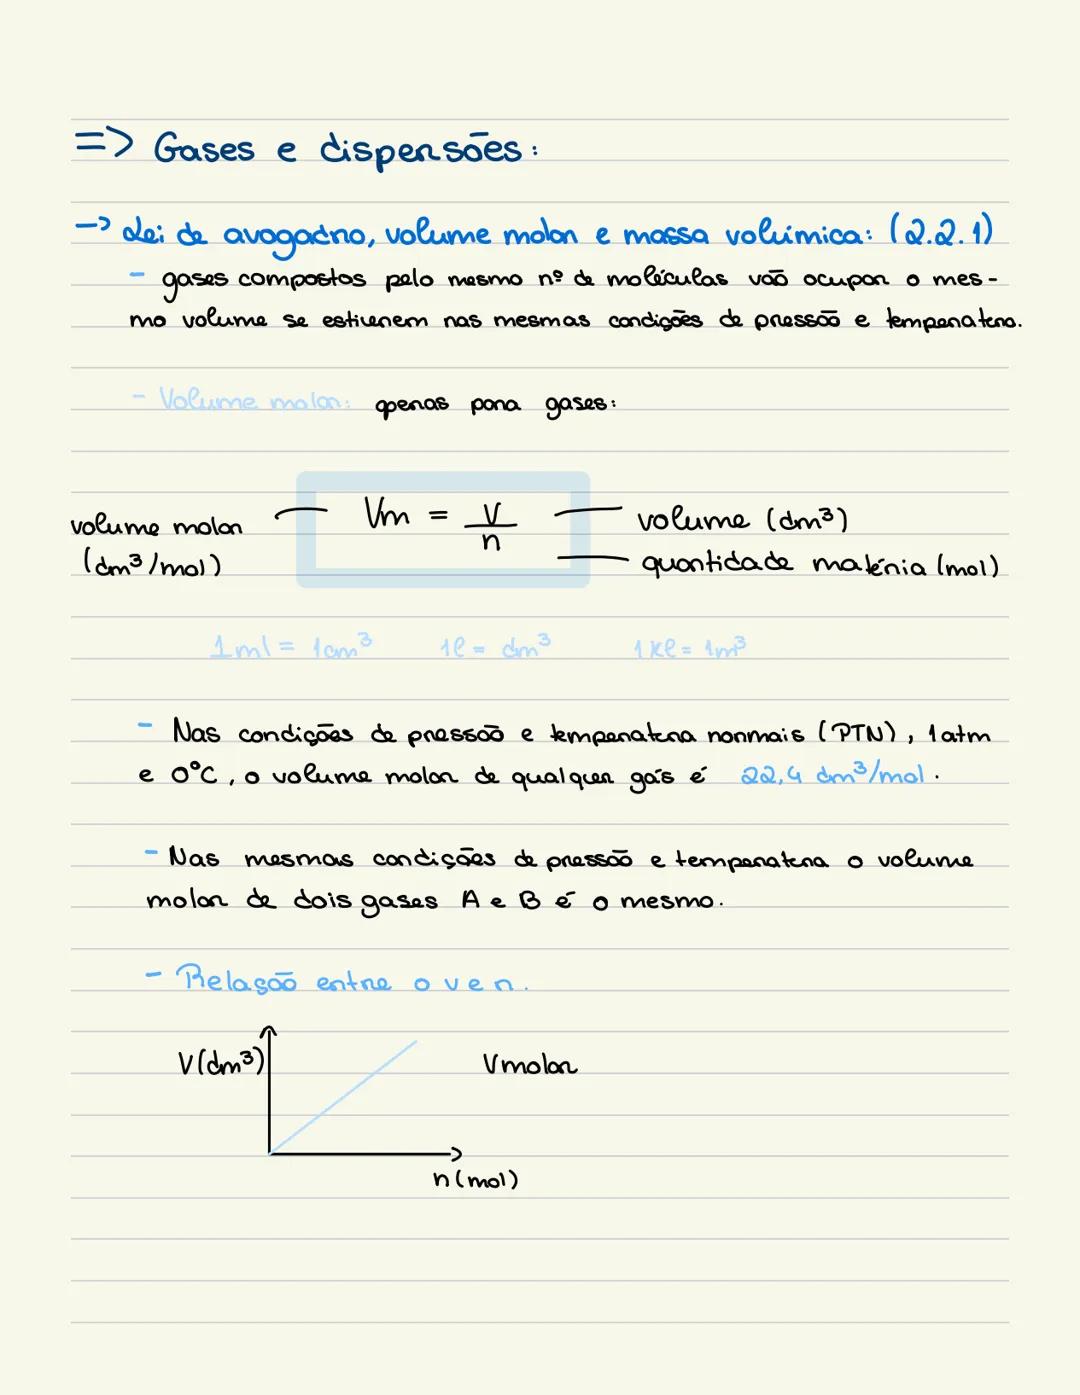 => Gases e dispersões:
-> Lei de avogadro, volume molar e massa volúmica: (2.2.1)
- gases compostos pelo mesmo nº de moléculas vão ocupar o mes-
mo volume se estiverem nas mesmas condições de pressão e temperatura.
- Volume molar: apenas para gases:
volume molar (dm³/mol)
Vm = V/n
volume (dm³)
quantidade matéria (mol)
1ml = 1cm³ 1l = dm³ 1kl = 1m³
- Nas condições de pressão e temperatura normais (PTN), 1atm
e 0°C, o volume molar de qualquer gás é 22,4 dm³/mol.
- Nas mesmas condições de pressão e temperatura o volume
molar de dois gases A e B é o mesmo.
- Relação entre o v e n.
V(dm³)
Vmolar
n(mol)